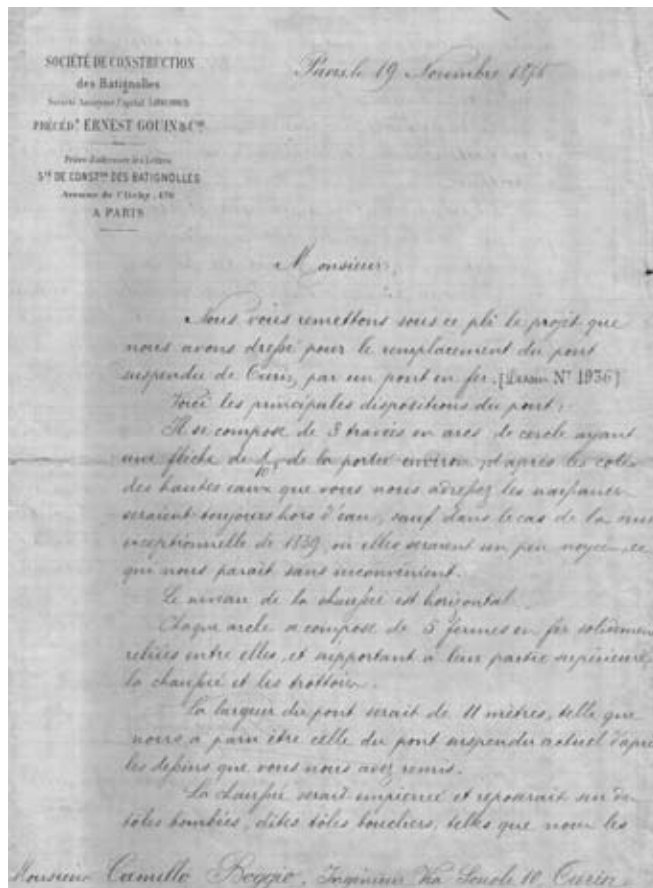 SOCIÉTÉ DE CONSTRUCTION
des Batignolles
Société Anonyme Capital
PRÉCÉDt ERNEST GOUIN & Cie
Prière d'adresser les Lettres
Sté DE CONSTon DES BATIGNOLLES
Avenue de Clichy, 176
A PARIS
Paris le 19 Novembre
Monsieur,
Nous vous remettons sous ce pli le projet que
nous avons dressé pour le remplacement du pont
suspendu de Turin, par un pont en fer. [Dessin N° 1936]
Voici les principales dispositions du pont:
Il se compose de 3 travées en arcs de cercle ayant
une flèche de 1/10 de la portée environ; d'après les cotes
des hautes eaux que vous nous adressez les naissances
seraient toujours hors d'eau, sauf dans le cas de la crue
exceptionnelle de 1839 où elles seraient un peu noyées, ce
qui nous paraît sans inconvénient.
Le niveau de la chaussée est horizontal.
Chaque arche se compose de 5 fermes en fer solidement
reliées entre elles, et supportant à leur partie supérieure
la chaussée et les trottoirs.
La largeur du pont serait de 11 mètres, telle que
nous a paru être celle du pont suspendu actuel d'après
les dessins que vous nous avez remis.
La chaussée serait empierrée et reposerait sur des
tôles bombées, dites tôles bouchers, telles que nous les
Monsieur Camillo Boggio, Ingénieur Via Scuole 10 Turin.